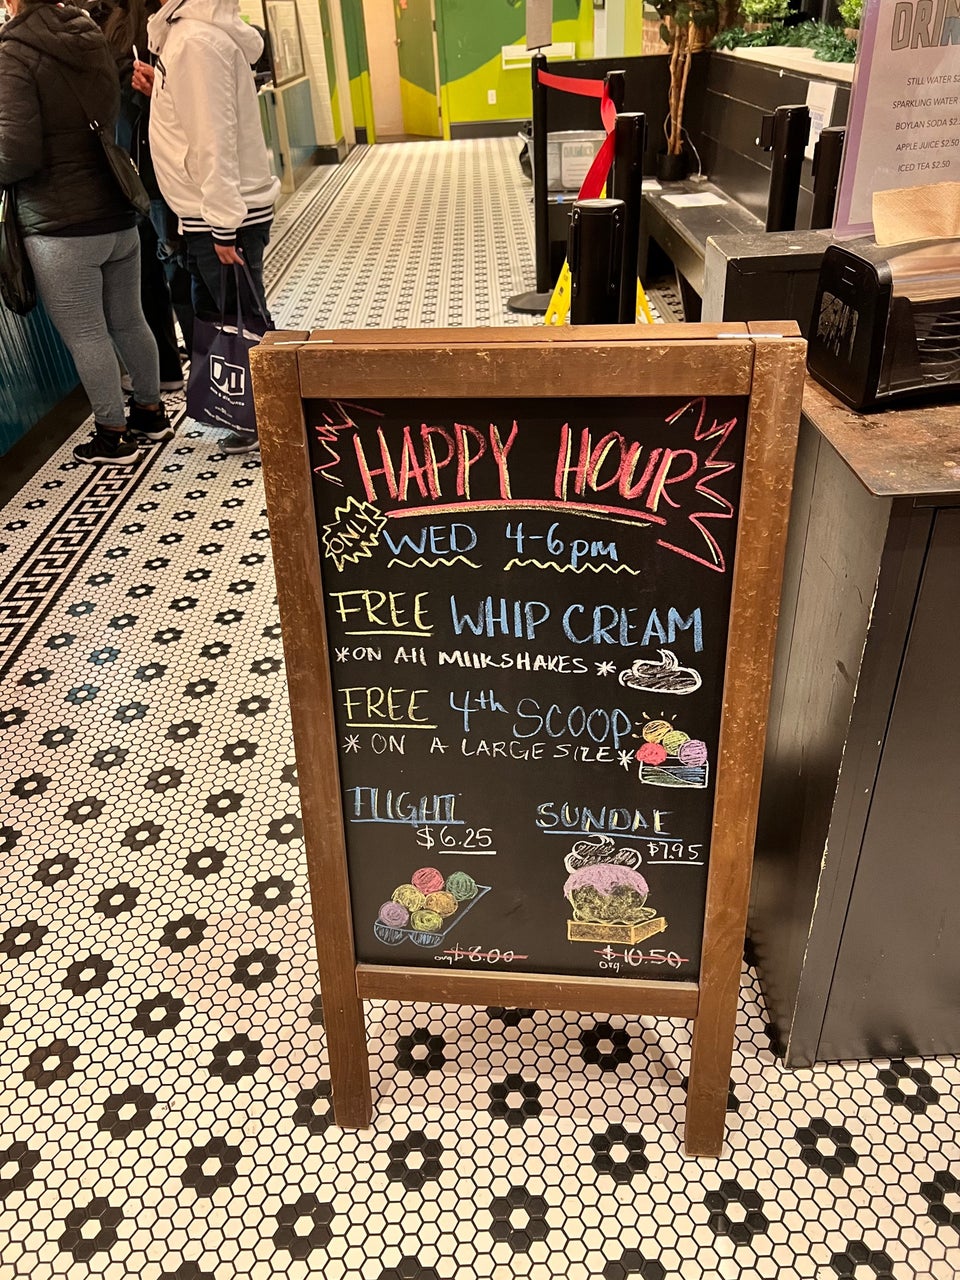 DRIN
STILL WATER $2
SPARKLING WATER
BOYLAN SODA $2.
APPLE JUICE $2.50
ICED TEA $2.50
HAPPY HOUR
ONLY
WED 4-6pm
FREE WHIP CREAM
*ON All MilkSHAKES *
FREE 4th SCOOP
* ON A LARGE SIZE *
FLIGHT
$6.25
SUNDAE
$7.95
org $8.00
org. $10.50